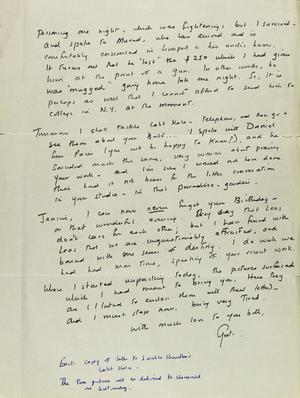 one night, which was frightening, but I survived -
and spoke to Murad, who has turned and is
comfortably ensconced in Liverpool in his uncle's home.
It turns out that he "lost" the $250 which I had given
him at the point of a gun. In other words, he
was "mugged" going home late one night. So, it is
perhaps as well that I cannot afford to send him to
college in N.Y. at the moment.
Tomorrow I shall tackle Lalit Kala - telephone, and then go &
see them about you both... I spoke with Daniel
from Paris (you will be happy to know!), and he
sounded much the same, very warm about praising
your work - and I'm sure I would not have done
this had it not been for the little conversation
in your studio - in that paradiso - garden.
Janine, I can now never forget your Birthday -
or that wonderful evening. They say that Leos
don't care for each other; but I have found with
Leos that we are unquestionably attracted, and
bound with one sense of destiny. I do wish we
had had more time, speaking of your recent work.
When I started unpacking today, the pictures surfaced
which I had meant to bring you. Here they
are (I hated to enclose them with this letter) -
and I must stop now, being very tired.
With much love to you both,
Encl: copy of letter to
Lalit Kala.
The two pictures will be delivered to
on Saturday.